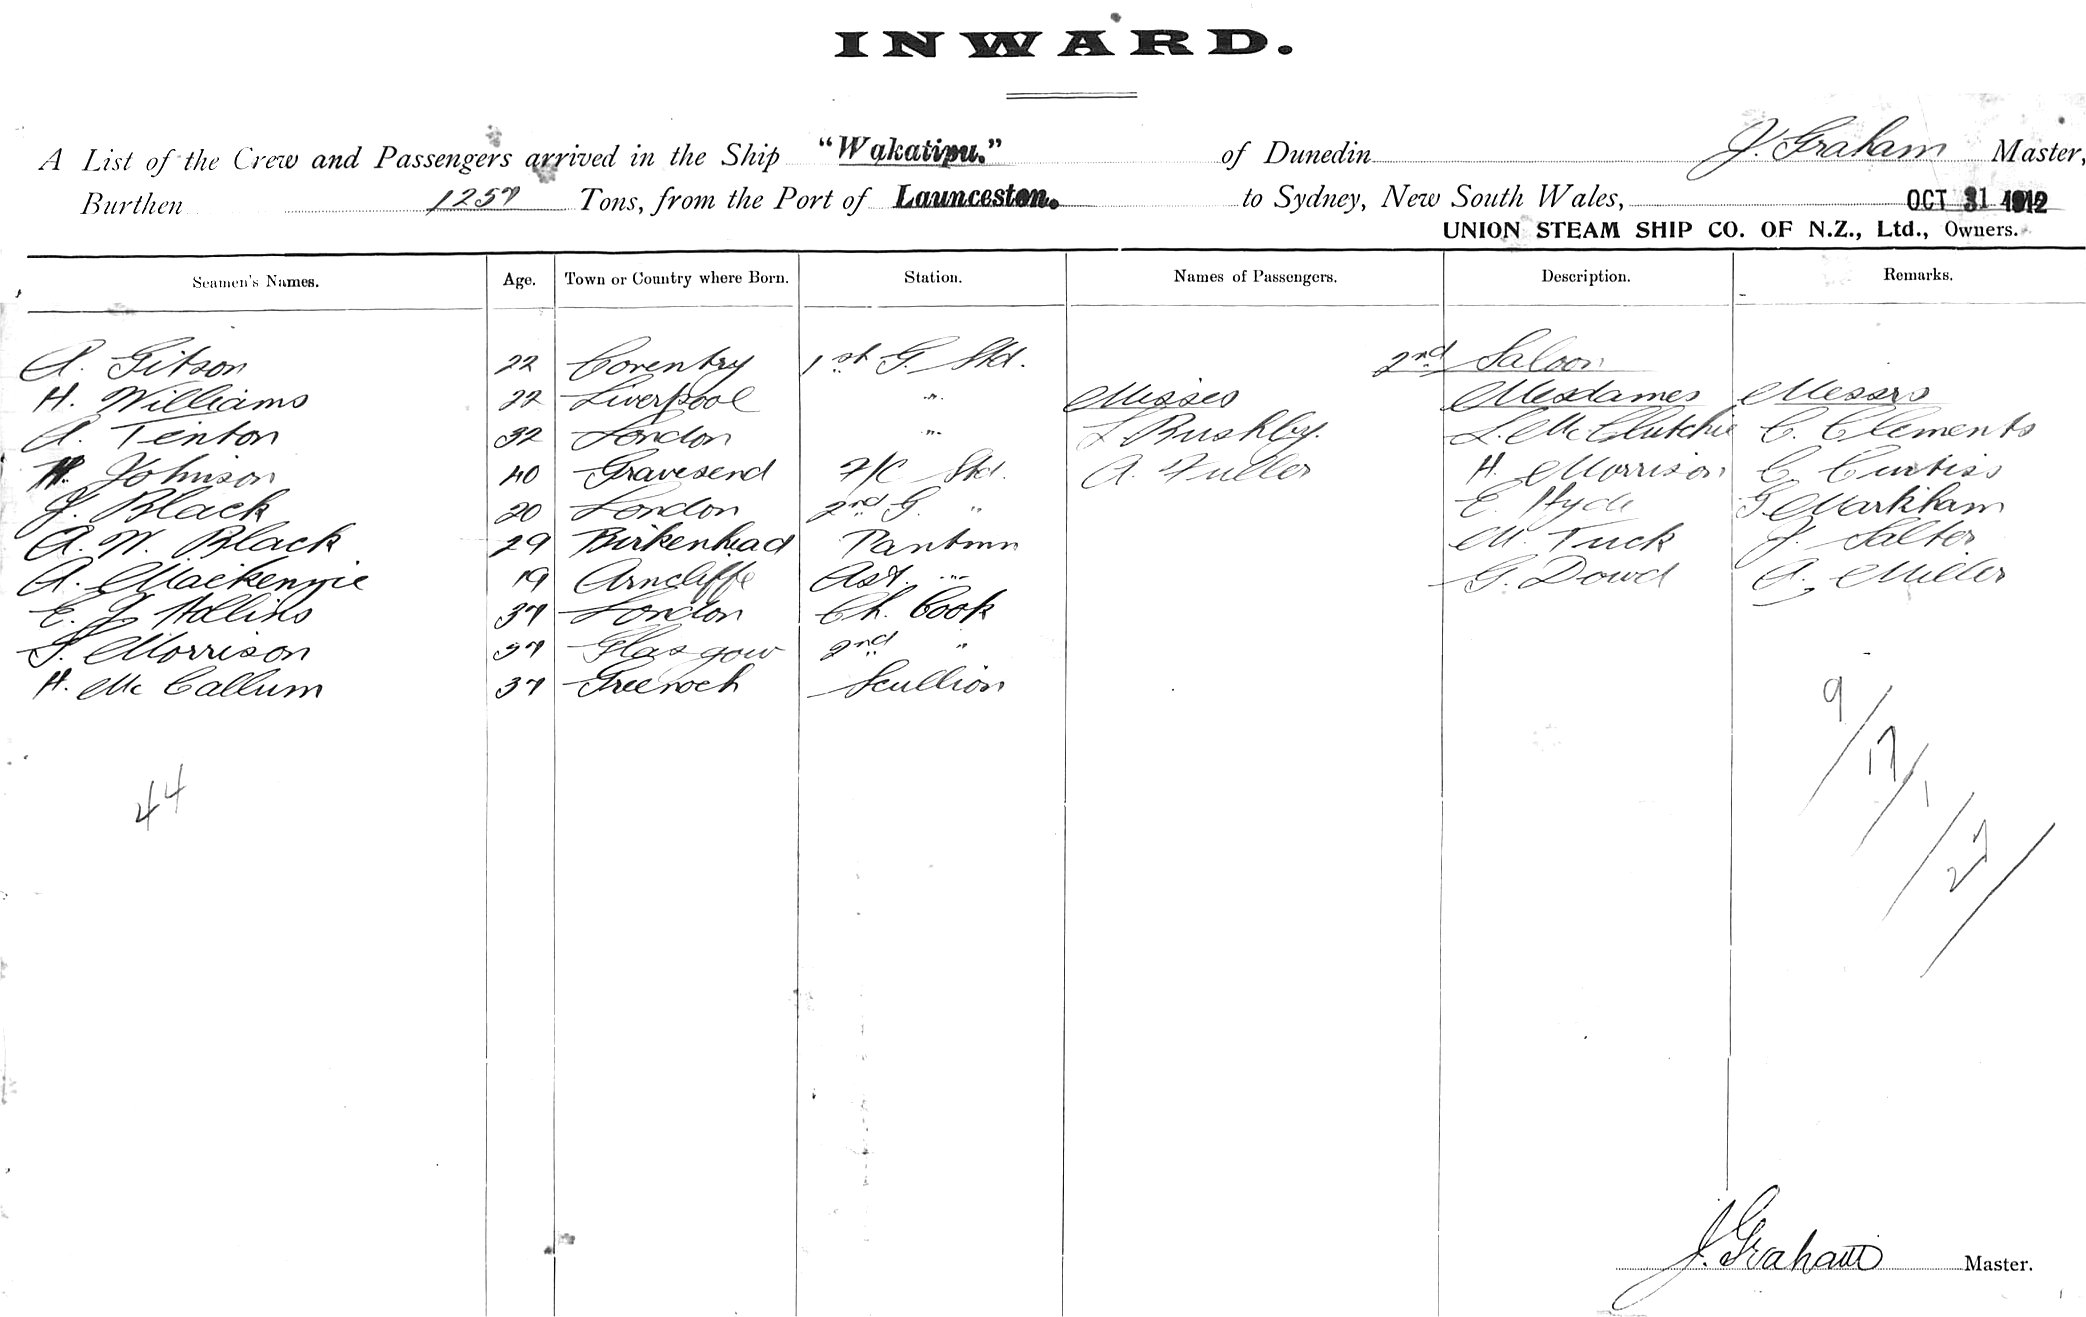 INWARD.
A List of the Crew and Passengers arrived in the Ship "Wakatipu." of Dunedin J. Graham Master,
Burthen 1257 Tons, from the Port of Launceston. to Sydney, New South Wales, OCT 31 1912
UNION STEAM SHIP CO. OF N.Z., Ltd., Owners.
Seamen's Names. Age. Town or Country where Born. Station. Names of Passengers. Description. Remarks.
A. Gitson 22 Coventry 1st G. Std. 2nd Saloon
H. Williams 22 Liverpool " Misses Mesdames Messrs
A. Tenton 32 London " L Bushby. L. McClutchie C. Clements
H. Johnson 40 Gravesend F/C Std. A. Fuller H. Morrison C. Curtiss
J. Black 20 London 2nd G. " E. Hyde G Markham
A. W. Black 29 Birkenhead Pantmn M. Tuck J. Salter
A. Mackenzie 19 Arncliffe Ast. " G. Dowd A. Miller
E. J. Hollins 37 London Ch. Cook
S. Morrison 37 Glasgow 2nd "
H. McCallum 37 Greenock Scullion
9/17/1/27/
44
J. Graham Master.